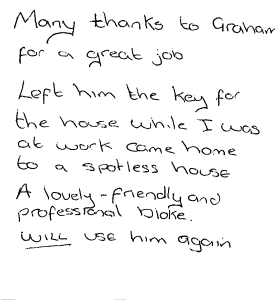 Many thanks to Graham
for a great job
Left him the key for
the house while I was
at work came home
to a spotless house
A lovely-friendly and
professional bloke.
WILL use him again